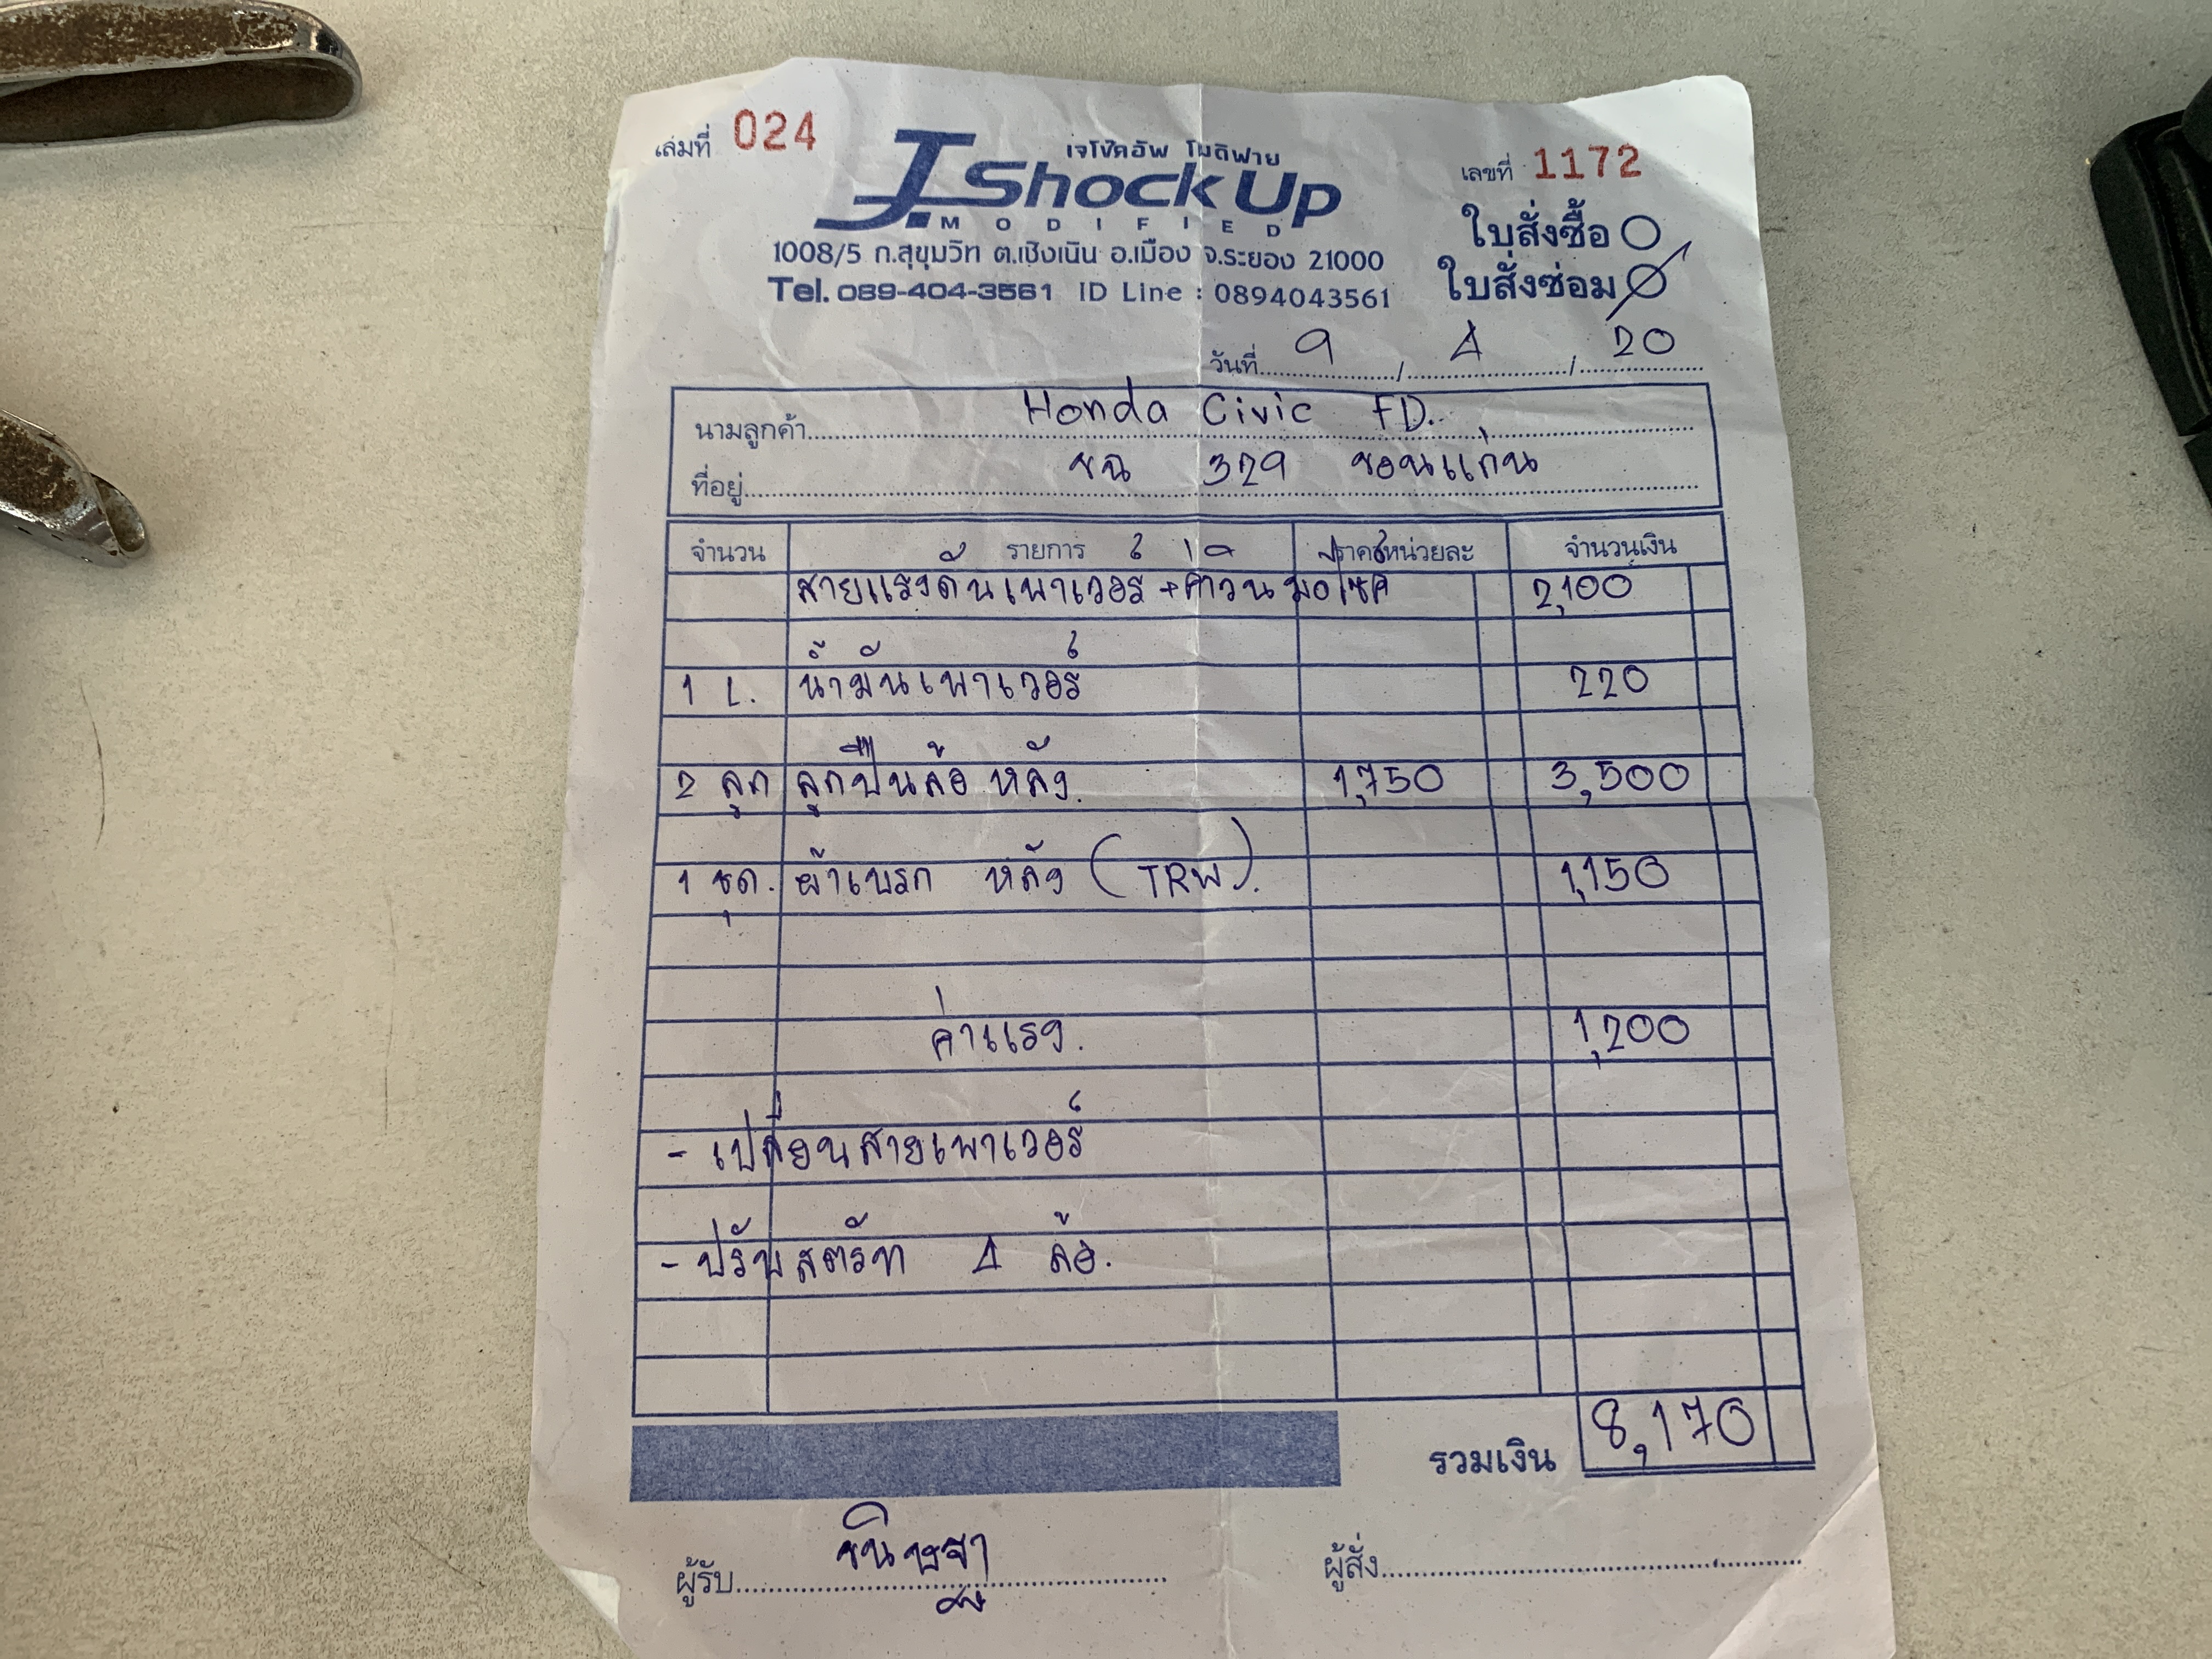 เล่มที่ 024
เจโช๊คอัพ โมดิฟาย
J. Shock Up
MODIFIED
เลขที่ 1172
ใบสั่งซื้อ
ใบสั่งซ่อม
1008/5 ถ.สุขุมวิท ต.เชิงเนิน อ.เมือง จ.ระยอง 21000
Tel. 089-404-3561 ID Line : 0894043561
วันที่ 9 / 4 / 20
นามลูกค้า Honda Civic FD.
ที่อยู่ ขฉ 329 ขอนแก่น
จำนวน รายการ ราคาหน่วยละ จำนวนเงิน
สายแรงดันเพาเวอร์ + 2,100
1 L. น้ำมันเพาเวอร์ 220
2 ลูก ลูกปืนล้อ หลัง. 1,750 3,500
1 ชุด. ผ้าเบรก หลัง (TRW). 1,150
ค่าแรง. 1,200
- เปลี่ยนสายเพาเวอร์
- ปรับสตรัท 4 ล้อ.
รวมเงิน 8,170
ผู้รับ
ผู้สั่ง